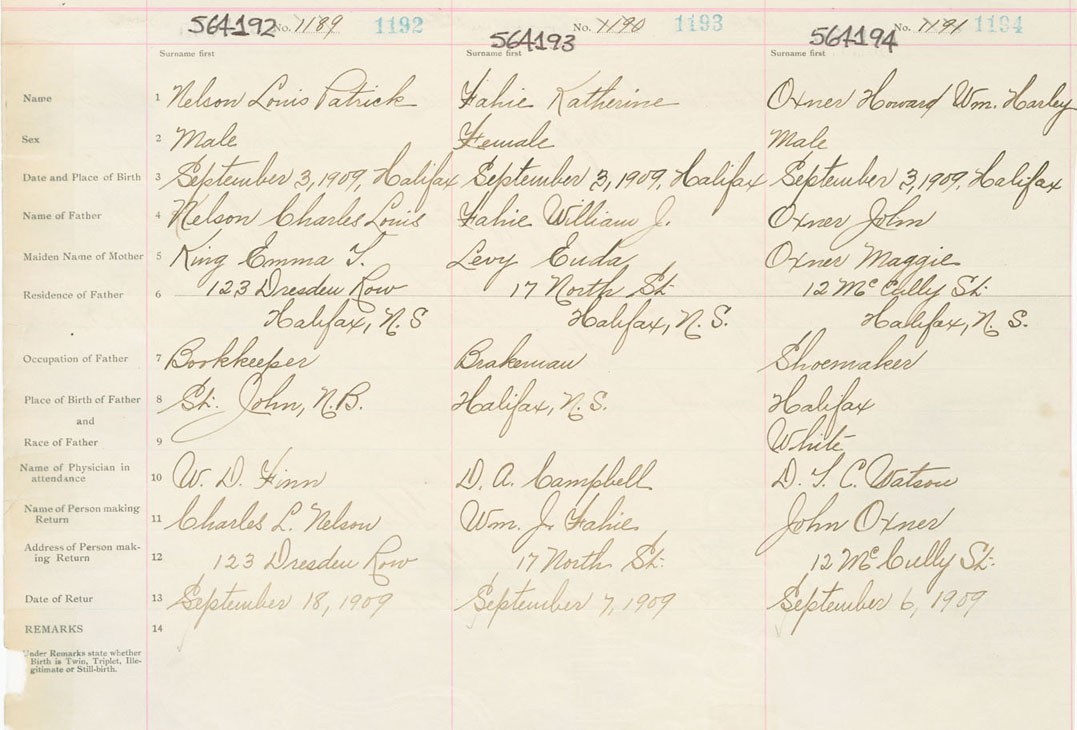 564192 No. 1189 1192 564193 No. 1190 1193 564194 No. 1191 1194
Surname first Surname first Surname first
Name 1 Nelson Louis Patrick Fahie Katherine Oxner Howard Wm. Harley
Sex 2 Male Female Male
Date and Place of Birth 3 September 3, 1909, Halifax September 3, 1909, Halifax September 3, 1909, Halifax
Name of Father 4 Nelson Charles Louis Fahie William J. Oxner John
Maiden Name of Mother 5 King Emma T. Levy Euda Oxner Maggie
Residence of Father 6 123 Dresden Row 17 North St. 12 Mc Cully St.
Halifax, N.S Halifax, N.S. Halifax, N.S.
Occupation of Father 7 Bookkeeper Brakeman Shoemaker
Place of Birth of Father 8 St. John, N.B. Halifax, N.S. Halifax
and
Race of Father 9 White
Name of Physician in
attendance 10 W. D. Finn D. A. Campbell D. T. C. Watson
Name of Person making
Return 11 Charles L. Nelson Wm. J. Fahie John Oxner
Address of Person mak-
ing Return 12 123 Dresden Row 17 North St. 12 Mc Cully St.
Date of Retur 13 September 18, 1909 September 7, 1909 September 6, 1909
REMARKS 14
Under Remarks state whether
Birth is Twin, Triplet, Ille-
gitimate or Still-birth.